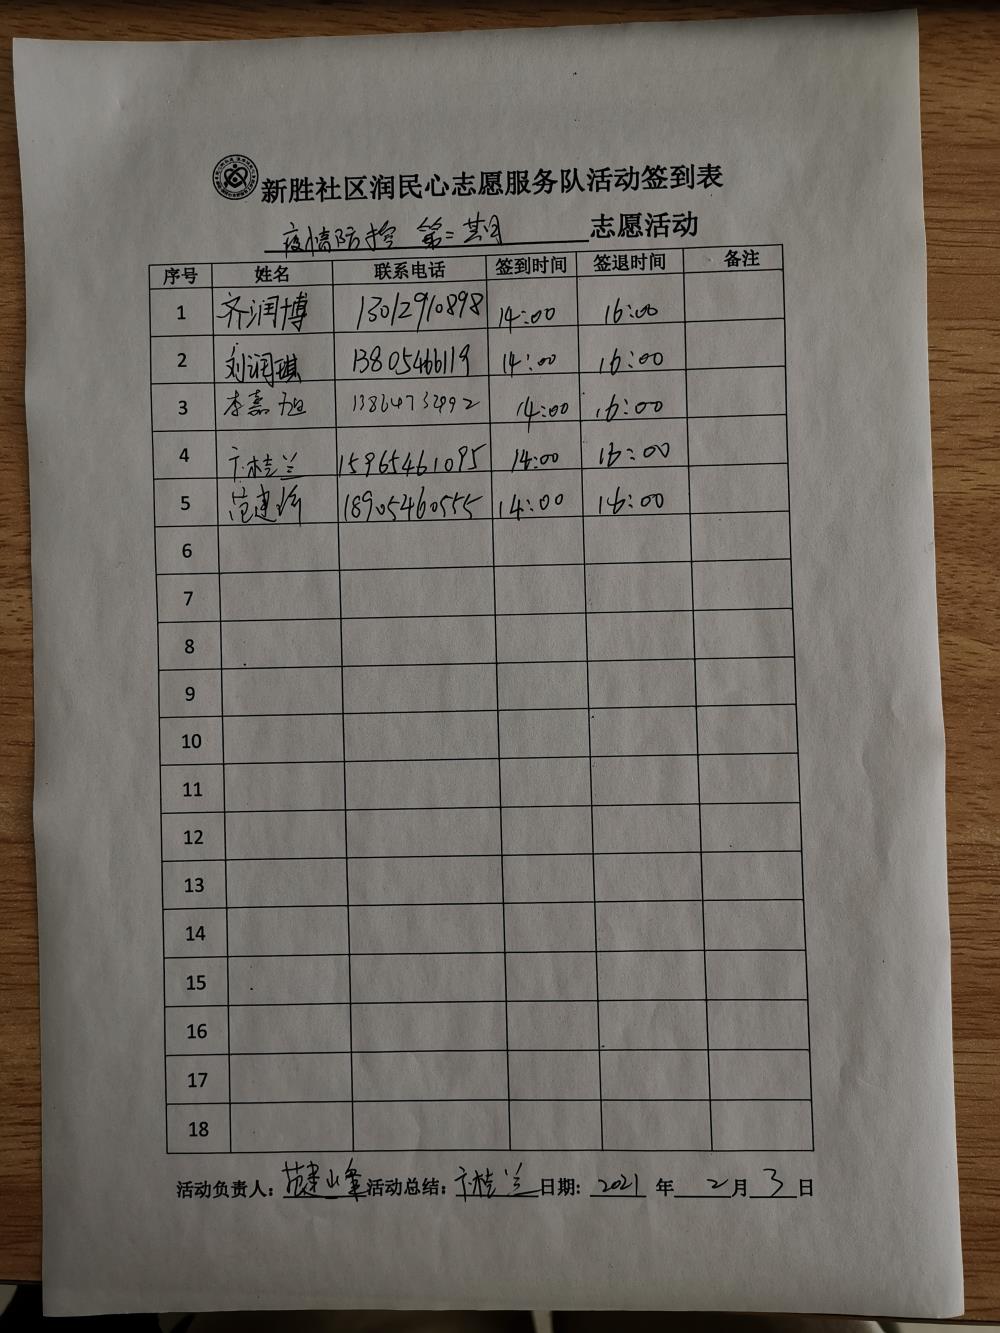 新胜社区润民心志愿服务队活动签到表
疫情防控 第二期 志愿活动
序号 姓名 联系电话 签到时间 签退时间 备注
1 齐润博 13012910898 14:00 16:00
2 刘润琪 13805466119 14:00 16:00
3 李嘉旭 13864732492 14:00 16:00
4 卞桂兰 15965461095 14:00 16:00
5 范建峰 18905460555 14:00 16:00
6
7
8
9
10
11
12
13
14
15
16
17
18
活动负责人：范建峰 活动总结：卞桂兰 日期：2021 年 2 月 3 日